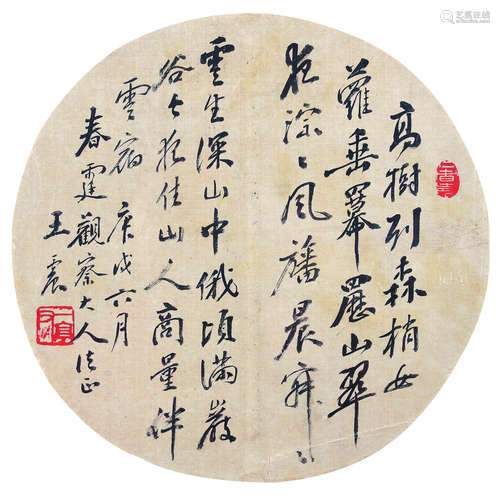 高樹列森梢女
蘿垂羃䍥山翠
風旛晨
雲生深山中俄頃滿巖
谷今夜住山人商量伴
雲宿 庚戌六月
春霆觀察大人法正
王震